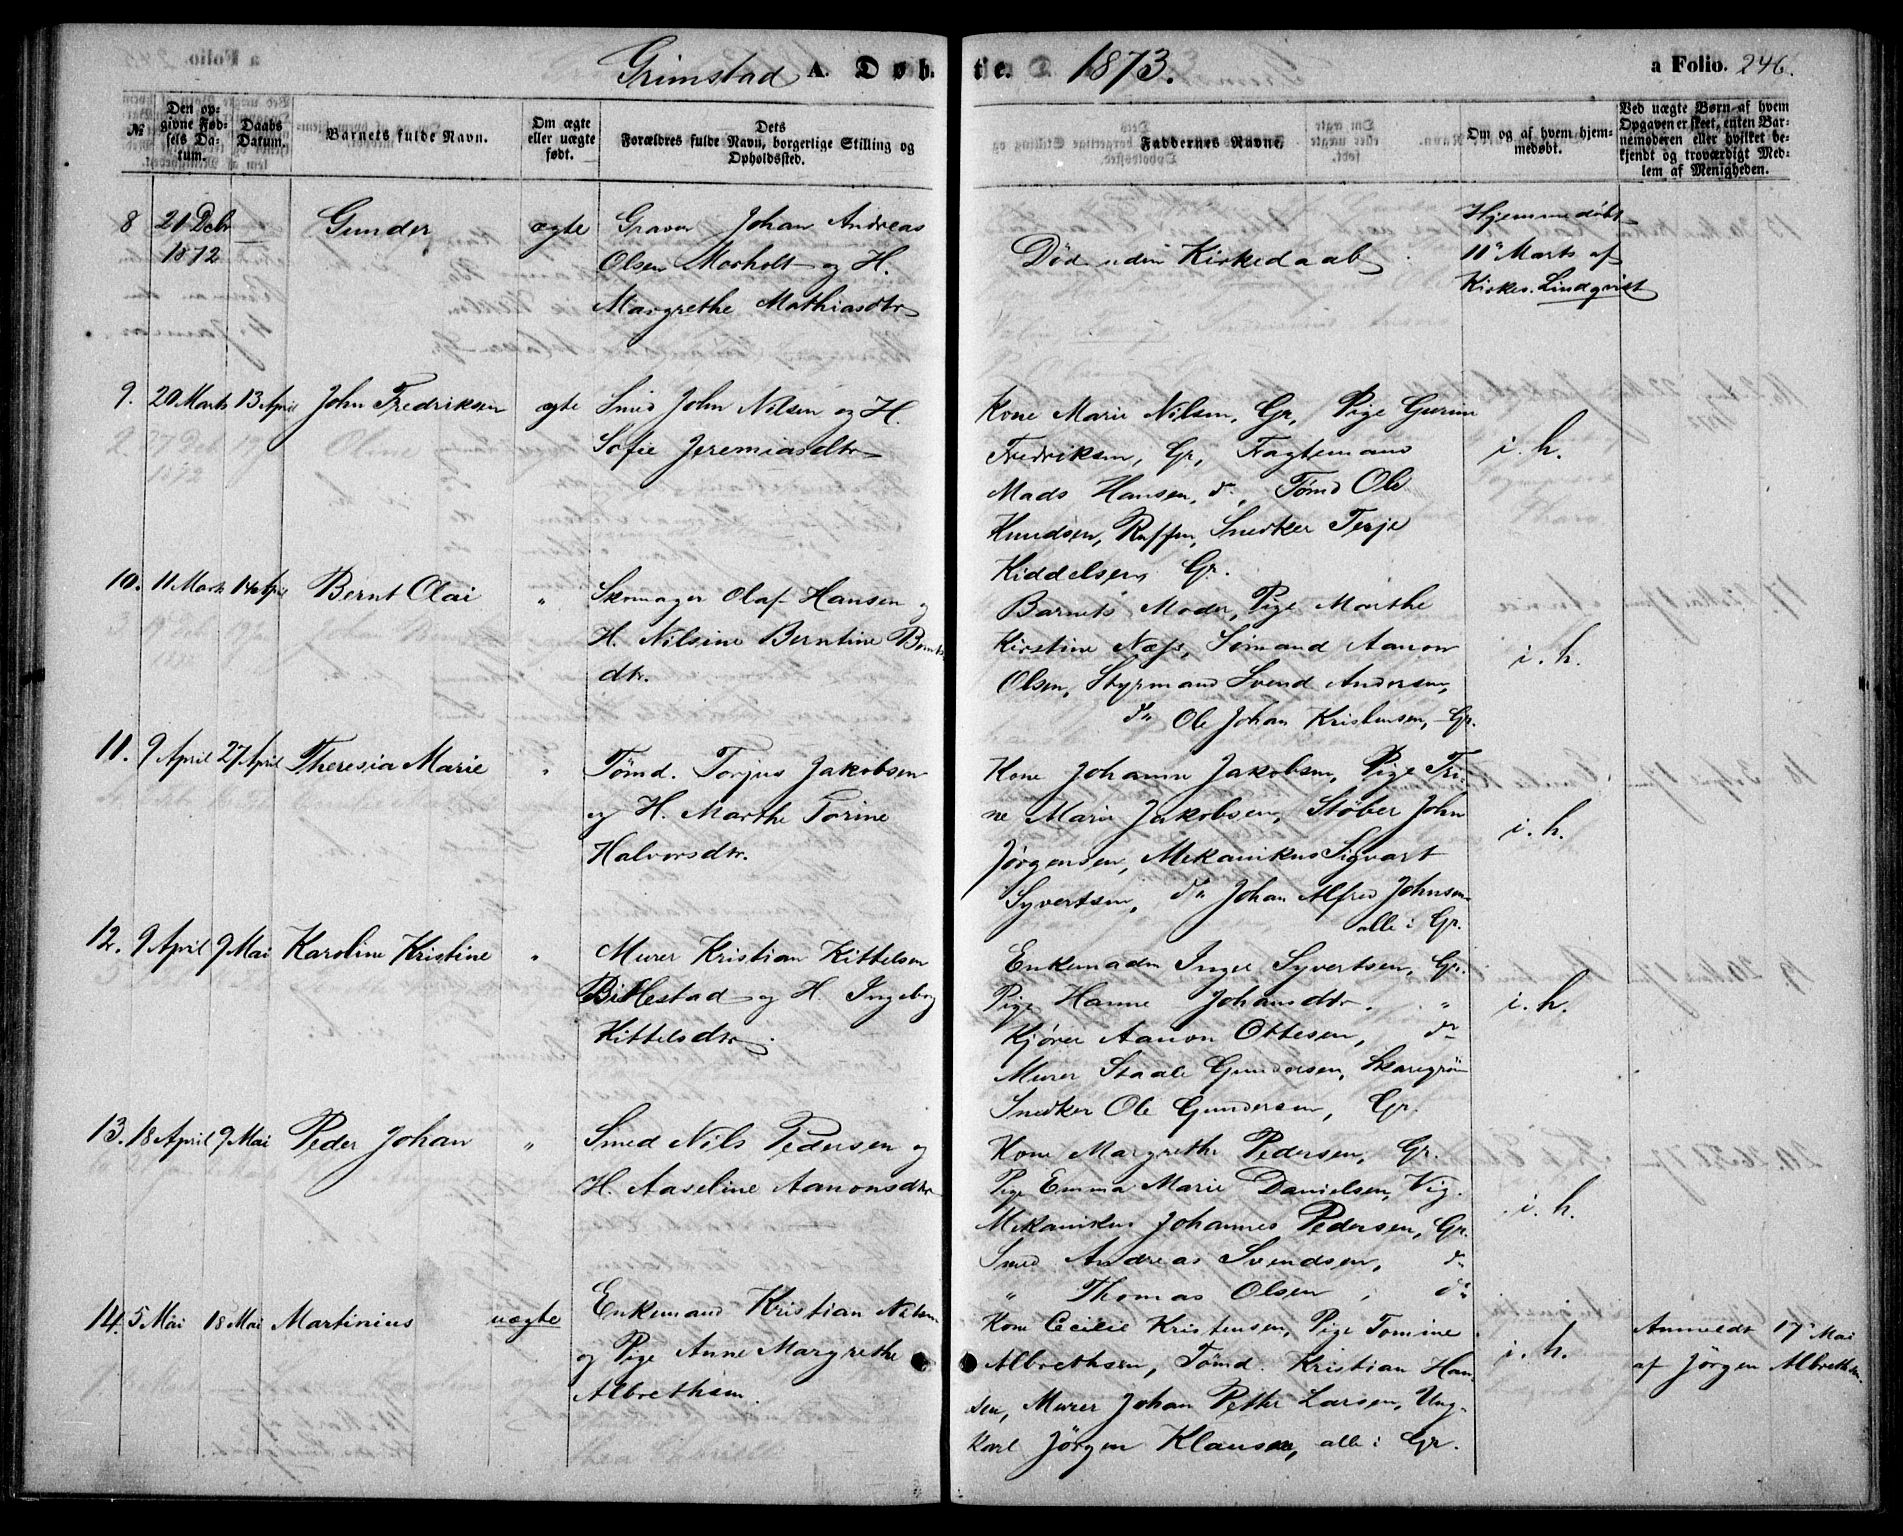 Grimstad A. Døbte. 1873. a Folio. 246.
№
Den op-
givne Fød-
sels Da-
tum.
Daabs
Datum.
Barnets fulde Navn.
Om ægte
eller uægte
født.
Dets
Forældres fulde Navn, borgerlige Stilling og
Opholdssted.
Faddernes Navne.
Om og af hvem hjem-
medøbt.
Ved uægte Børn af hvem
Opgaven er skeet, enten Bar-
nemoderen eller hvilket be-
kjendt og troværdigt Med-
lem af Menigheden.
8 21 Debr 1872 — Gunder ægte
Graver Johan Andreas
Olsen Morholt og H.
Margrethe Mathiasdtr
Død uden Kirkedaab
Hjemmedøbt
11te Marts af
Kirkes. Lindqvist
9. 20 Marts 13 April John Fredriksen ægte
Smed John Nilsen og H.
Sofie Jeremiasdtr
Kone Marie Nilsen, Gr, Pige Gurine
Fredriksen, Gr, Fragtemand
Mads Hansen, do, Tømd Ole
Knudsen, Snedker Terje
Kiddelsen, Gr.
i. h.
10. 11 Marts 14 April Bernt Olai "
Skomager Olaf Hansen og
H. Nilsine Berntine Bernts-
dtr.
Barnets Moder, Pige Marthe
Kirstine Næss, Sømand Aanon
Olsen, Styrmand Svend Andersen,
do Ole Johan Kristensen, Gr.
i. h.
11. 9 April 27 April Theresia Marie "
Tømd. Torjus Jakobsen
og H. Marthe Torine
Halvorsdtr.
Kone Johanne Jakobsen, Pige Tri-
ne Marie Jakobsen, Støber John
Jørgensen, Mekanikus Sigvart
Syvertsen, do Johan Alfred Johnsen
alle i Gr.
i. h.
12. 9 April 9 Mai Karoline Kristine "
Murer Kristian Kittelsen
Billestad og H. Ingeborg
Kittelsdtr.
Enkemadm Inger Syvertsen, Gr.
Pige Hanne Johansdtr, "
Kjører Aanon Ottesen, do
Murer Staale Gundersen,
Snedker Ole Gundersen, Gr.
i. h.
13. 18 April 9 Mai Peder Johan "
Smed Nils Pedersen og
H. Aaseline Aanonsdtr
Kone Margrethe Pedersen, Gr.
Pige Emma Marie Danielsen, Vig.
Mekanikus Johannes Pedersen, Gr.
Smed Andreas Svendsen, do
" Thomas Olsen, do
i. h.
14. 5 Mai 18 Mai Martinius uægte
Enkemand Kristian Nilsen
og Pige Anne Margrethe
Albrethsen.
Kone Cecilie Kristensen, Pige Tomine
Albrethsen, Tømd. Kristian Han-
sen, Murer Johan Petter Larsen, Ung-
karl Jörgen Klausen, alle i Gr.
i. h.
Anmeldt 17 Mai
af Jörgen Albrethsen